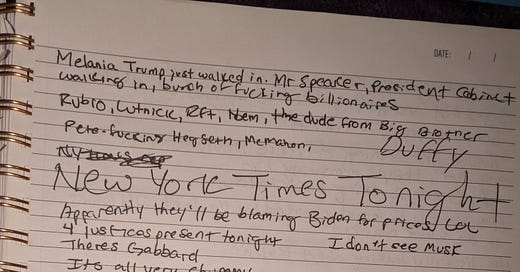 DATE: / /
Melania Trump just walked in. Mr Speaker, President Cabinet
walking in, bunch of fucking billionaires
Rubio, Lutnick, RFK, Noem, the dude from Big Brother
Pete fucking Hegseth, McMahon, Duffy
New York Times Tonight
Apparently they'll be blaming Biden for prices lol
4 justices present tonight I don't see Musk
Theres Gabbard
Its all very